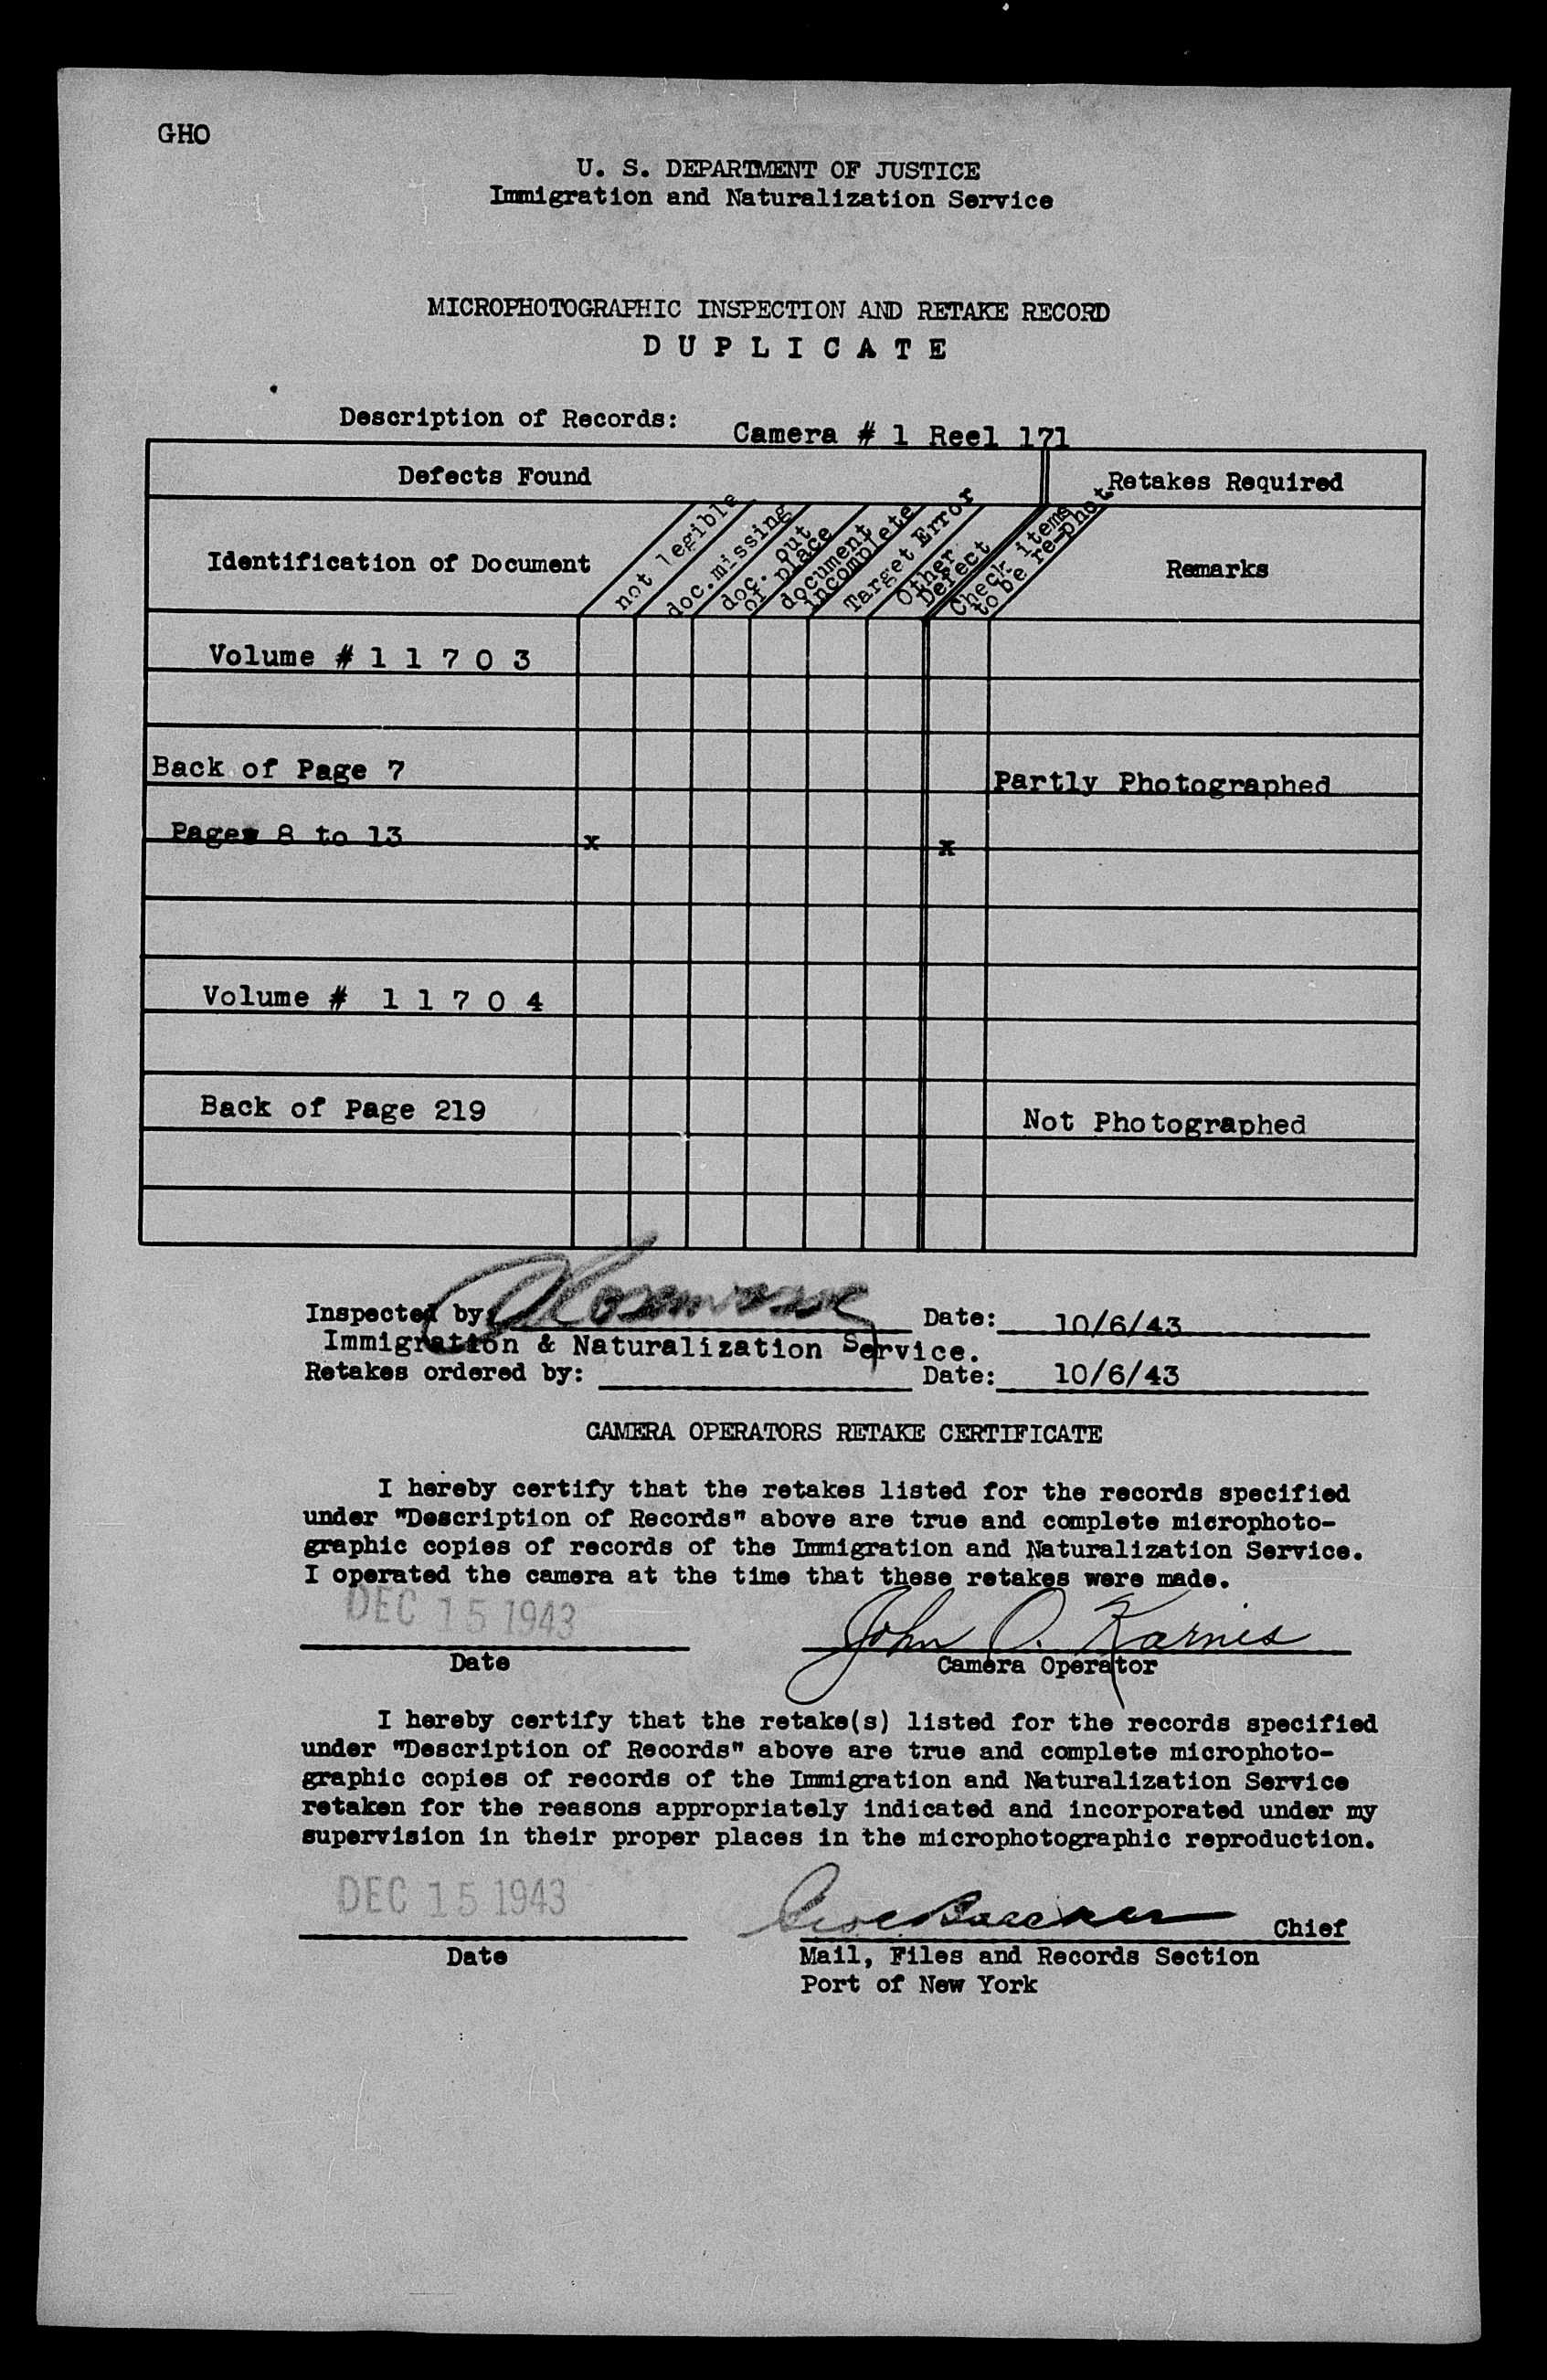 GHO
U. S. DEPARTMENT OF JUSTICE
Immigration and Naturalization Service
MICROPHOTOGRAPHIC INSPECTION AND RETAKE RECORD
D U P L I C A T E
Description of Records: Camera # 1 Reel 171
Defects Found Retakes Required
Identification of Document
not legible
doc. missing
doc. out
of place
document
incomplete
Target Error
Other
Defect
Check items
to be re-phot
Remarks
Volume # 1 1 7 0 3
Back of Page 7 Partly Photographed
Pages 8 to 13 x x
Volume # 1 1 7 0 4
Back of Page 219 Not Photographed
Inspected by: Date: 10/6/43
Immigration & Naturalization Service.
Retakes ordered by: Date: 10/6/43
CAMERA OPERATORS RETAKE CERTIFICATE
I hereby certify that the retakes listed for the records specified
under "Description of Records" above are true and complete microphoto-
graphic copies of records of the Immigration and Naturalization Service.
I operated the camera at the time that these retakes were made.
DEC 15 1943 John O. Karnes
Date Camera Operator
I hereby certify that the retake(s) listed for the records specified
under "Description of Records" above are true and complete microphoto-
graphic copies of records of the Immigration and Naturalization Service
retaken for the reasons appropriately indicated and incorporated under my
supervision in their proper places in the microphotographic reproduction.
DEC 15 1943 Chief
Date Mail, Files and Records Section
Port of New York